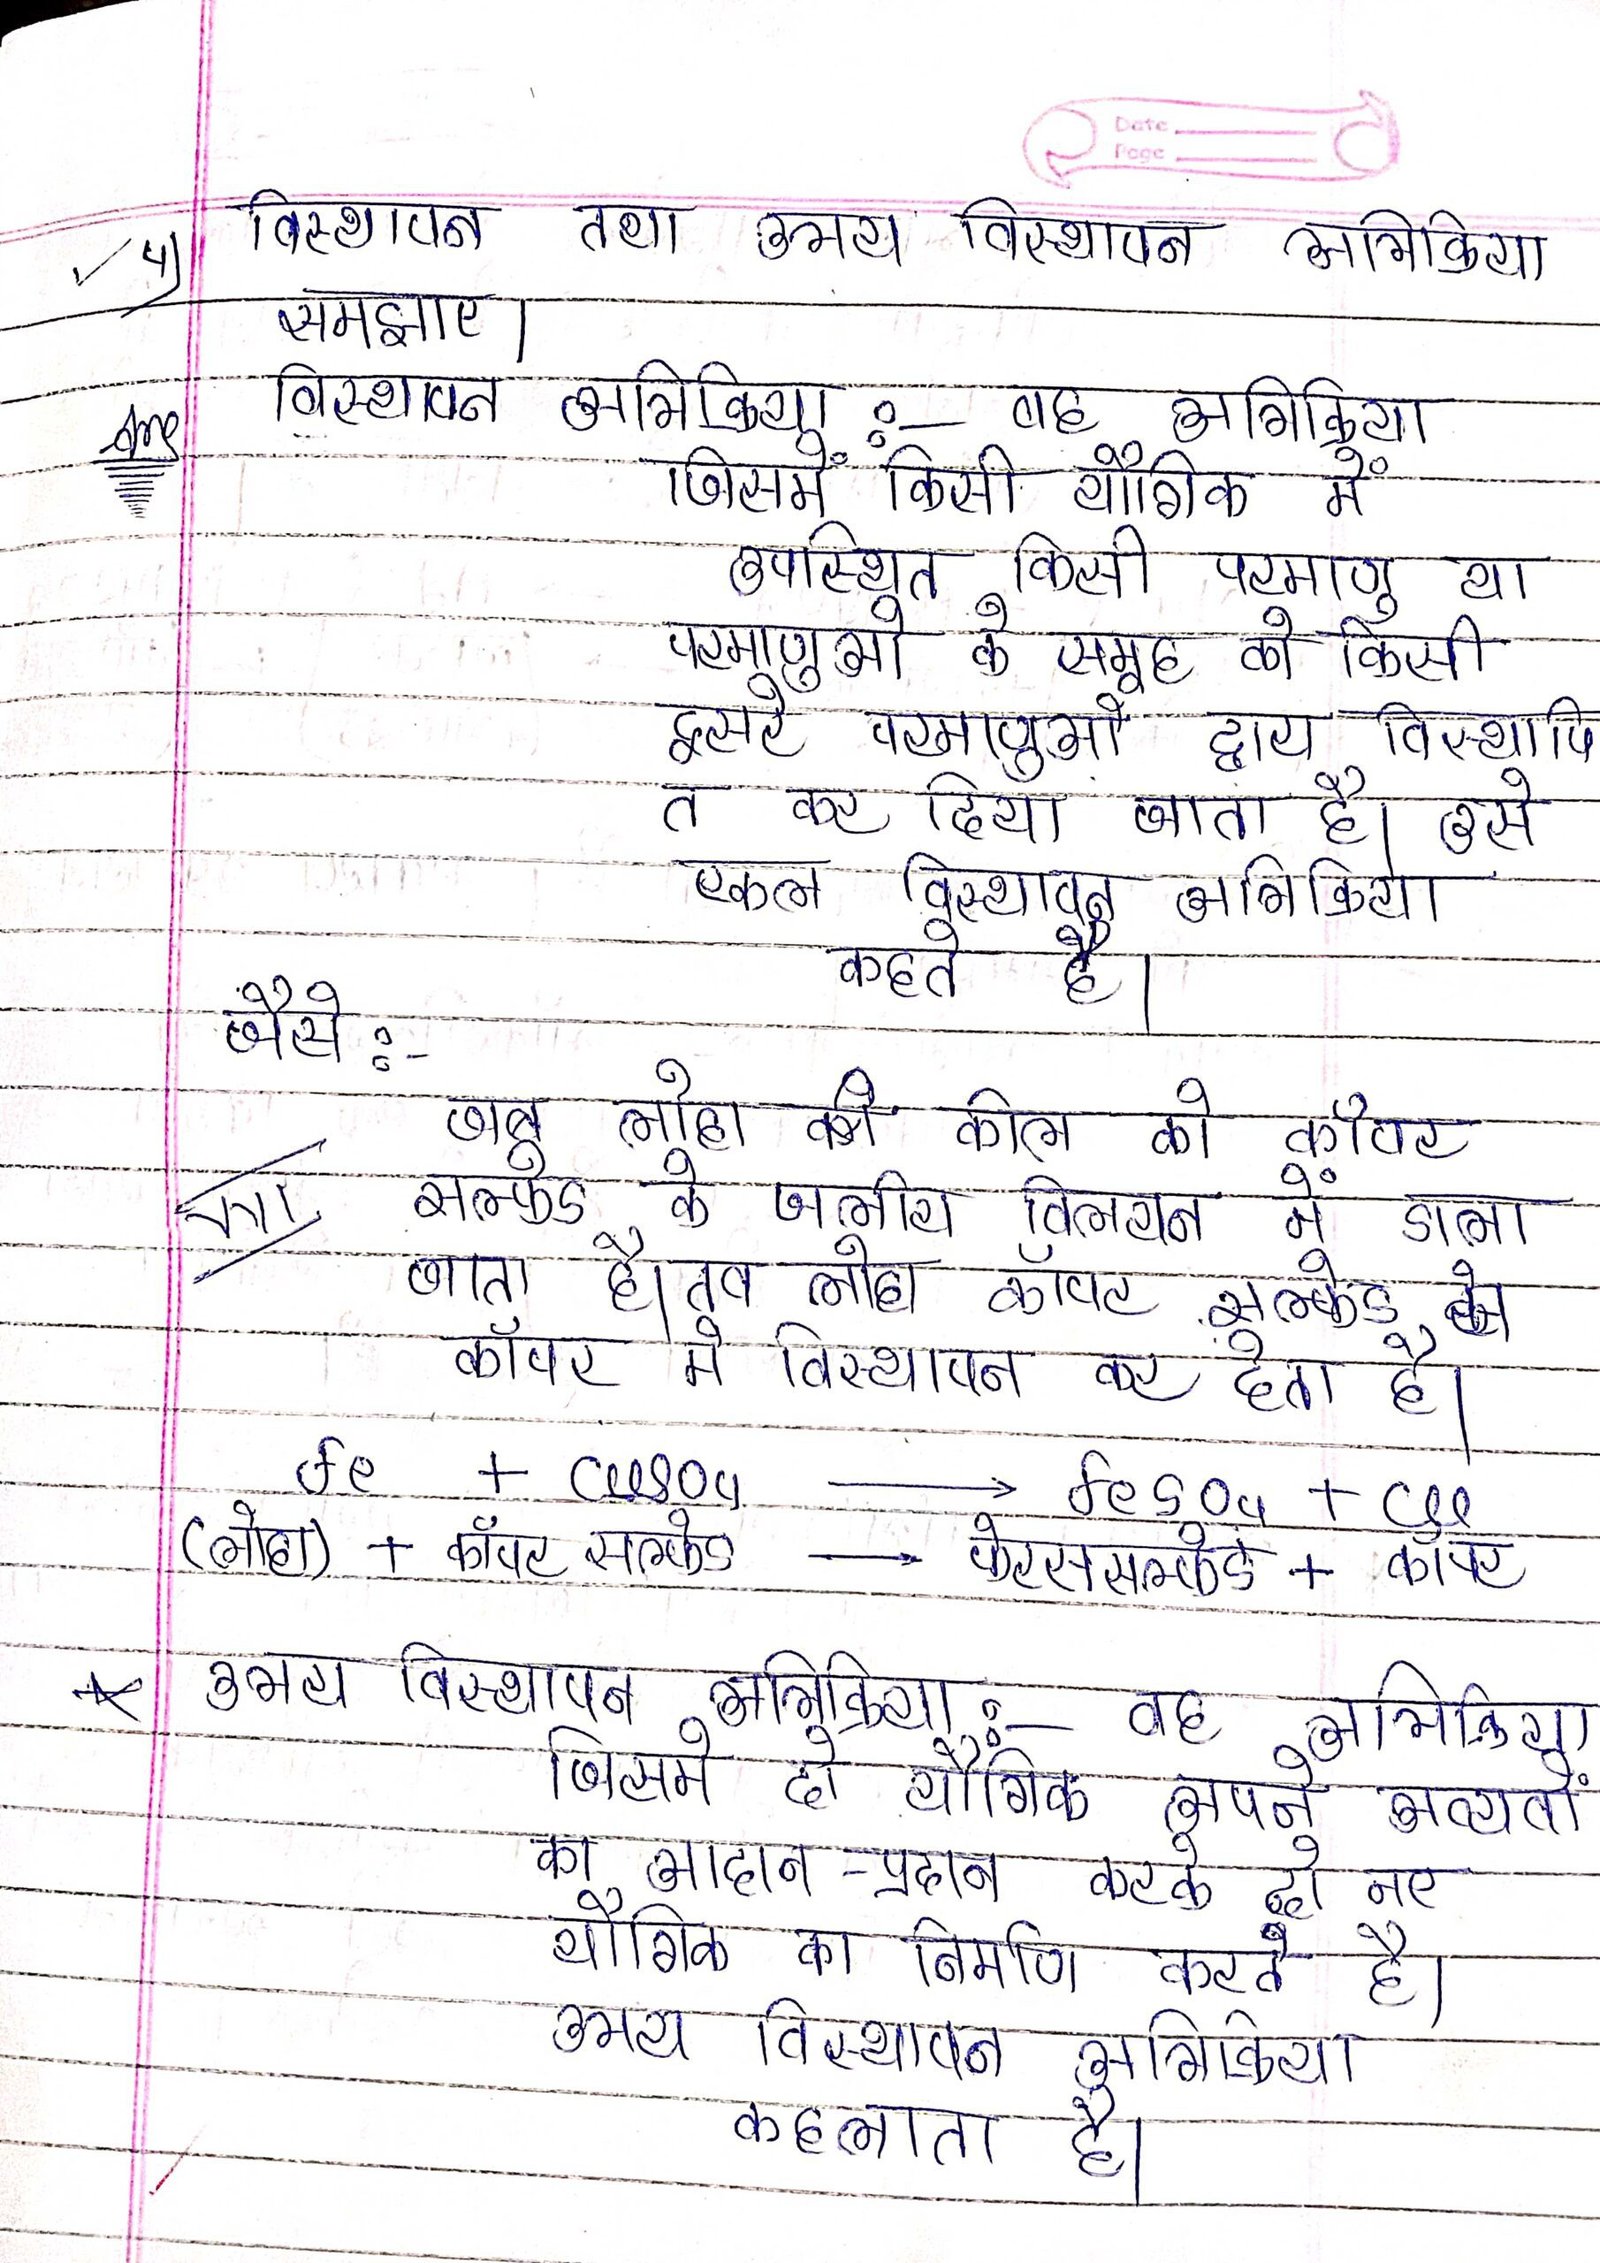 Date
Page
4) विस्थापन तथा उभय विस्थापन अभिक्रिया
समझाए।
Ans विस्थापन अभिक्रिया :- वह अभिक्रिया
जिसमें किसी यौगिक में
उपस्थित किसी परमाणु या
परमाणुओ के समूह को किसी
दूसरे परमाणुओं द्वारा विस्थापि
त कर दिया जाता है। उसे
एकल विस्थापन अभिक्रिया
कहते है।
जैसे :-
जब लोहा की कील को कॉपर
सल्फेड के जलीय विलयन में डाला
जाता है। तब लोहा कॉपर सल्फेड को
कॉपर मे विस्थापन कर देता है।
Fe + CuSO4 → FeSO4 + Cu
(लोहा) + कॉपर सल्फेड → फेरससल्फेड + कॉपर
* उभय विस्थापन अभिक्रिया :- वह अभिक्रिया
जिसमे दो यौगिक अपने अवयवों
का आदान-प्रदान करके दो नए
यौगिक का निर्माण करते है।
उभय विस्थापन अभिक्रिया
कहलाता है।